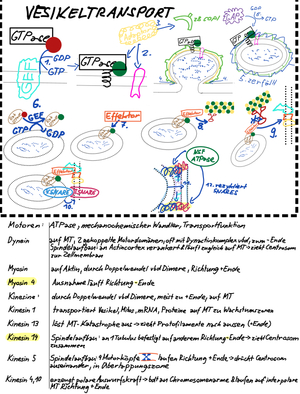 VESIKELTRANSPORT
GTPase
1. GDP
GTP
GTPase
2.
3.
GTPase
4.
GTPase
GDP
GTP
5. Zerfall
6.
GEF
GDP
GTP
GDP
Effektor
7.
Effektor
8.
9.
VSNARE
TSNARE
10.
NSF
ATPase
11. rezykliert
SNAREs
Motoren: ATPase, mechanochemischer Wandler, Transportfunktion
Dynein auf MT, 2 gekoppelte Motordomänen, oft mit Dynactinkomplex vbd, zum -Ende
Spindelaufbau: an Actincortex verankert & läuft zugleich auf MT → zieht Centrosom
zur Zellmembran
Myosin auf Aktin, durch Doppelwendel vbd Dimere, Richtung +Ende
Myosin 4 Ausnahme läuft Richtung -Ende
Kinesine durch Doppelwendel vbd Dimere, meist zu +Ende, auf MT
Kinesin 1 transportiert Vesikel, Mito, mRNA, Proteine auf MT zu Wachstumszonen
Kinesin 13 löst MT-Katastrophe aus → zieht Protofilamente nach aussen (+Ende)
Kinesin 14 Spindelaufbau: an 1 Tubulus befestigt auf anderem Richtung -Ende → zieht Centrosom
zusammen
Kinesin 5 Spindelaufbau 4 Motorköpfe laufen Richtung +Ende → drückt Centrosom
auseinander, in Überlappungszone
Kinesin 4,10 erzeugt polare Auswurfskraft → hält an Chromosomenarme & laufen auf interpolare
MT Richtung +Ende